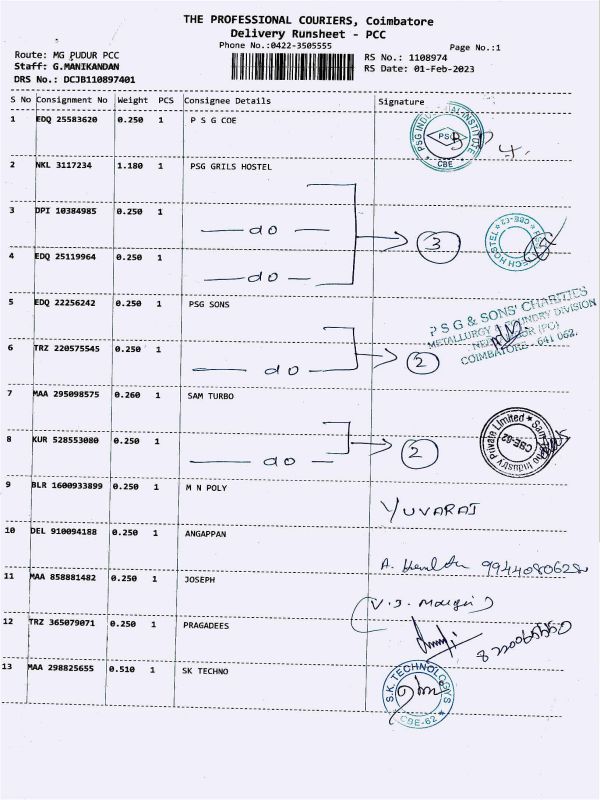 THE PROFESSIONAL COURIERS, Coimbatore
Delivery Runsheet - PCC
Phone No.:0422-3505555
Page No.:1
Route: MG PUDUR PCC
RS No.: 1108974
Staff: G.MANIKANDAN
RS Date: 01-Feb-2023
DRS No.: DCJB110897401
S No Consignment No Weight PCS Consignee Details Signature
1 EDQ 25583620 0.250 1 P S G COE
PSG INDUSTRIAL INSTITUTE
PSG
CBE
2 NKL 3117234 1.180 1 PSG GRILS HOSTEL
3 DPI 10384985 0.250 1
do
3
TECH HOSTEL
4 EDQ 25119964 0.250 1
do
5 EDQ 22256242 0.250 1 PSG SONS
P S G & SONS' CHARITIES
METALLURGY & FOUNDRY DIVISION
(PO)
COIMBATORE - 641 062.
6 TRZ 220575545 0.250 1
do
2
7 MAA 295098575 0.260 1 SAM TURBO
Sam Turbo Industry Private Limited
CBE-62
8 KUR 528553080 0.250 1
do
2
9 BLR 1600933899 0.250 1 M N POLY
YUVARAJ
10 DEL 910094188 0.250 1 ANGAPPAN
A. 9944080628
11 MAA 858881482 0.250 1 JOSEPH
V.J.
12 TRZ 365079071 0.250 1 PRAGADEES
13 MAA 298825655 0.510 1 SK TECHNO
S.K. TECHNOLOGYS
CBE-62